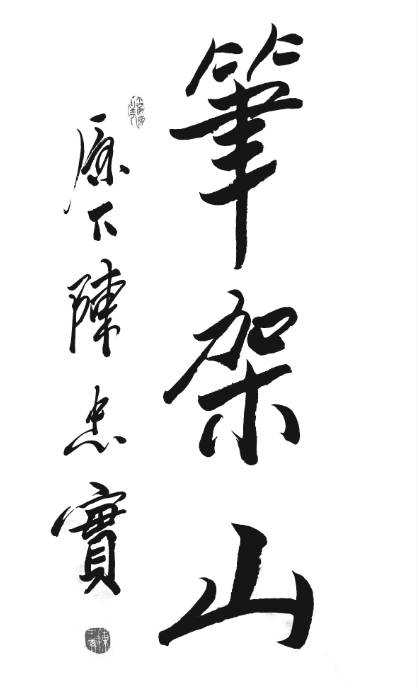 筆架山
原下陳忠實